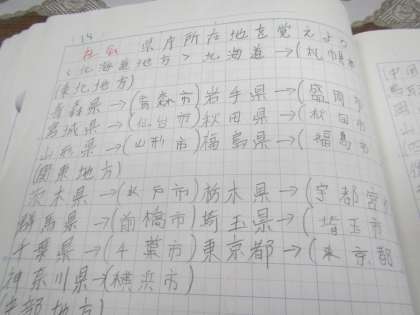 14
社会 県庁所在地を覚えよう
<北海道地方> 北海道→(札幌市
(東北地方)
青森県→(青森市)岩手県→(盛岡市
宮城県→(仙台市)秋田県→(秋田市
山形県→(山形市)福島県→(福島市
(関東地方)
茨木県→(水戸市)栃木県→(宇都宮
群馬県→(前橋市)埼玉県→(埼玉市
千葉県→(千葉市)東京都→(東京都
神奈川県→(横浜市)